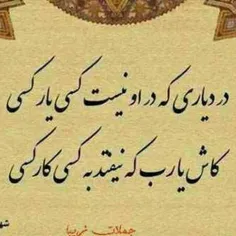 در دیاری که در او نیست کسی یار کسی
کاش یارب که نیفتد به کسی کار کسی
جملات زیبا